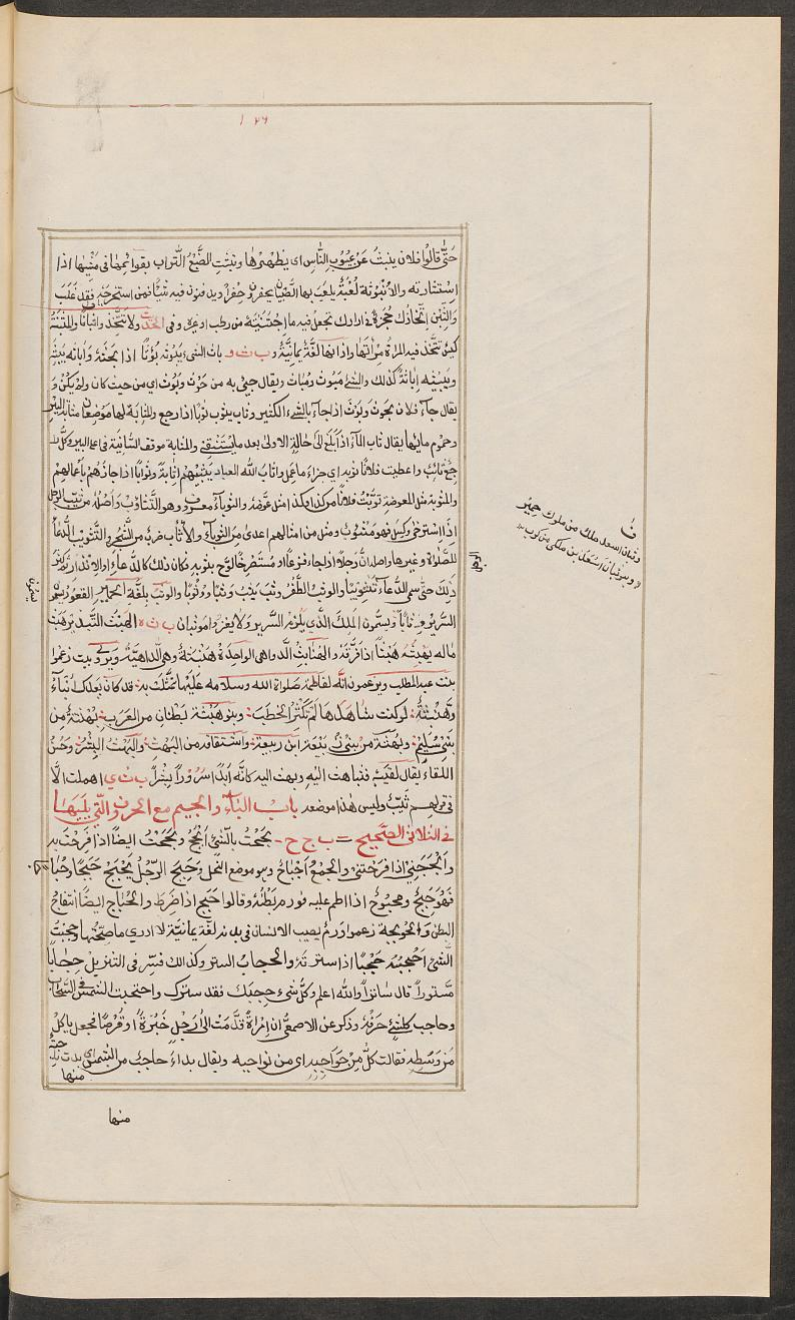 حتى قالوا فلان ينبث عن عيوب الناس اى يظهرها ونبثت الضبع التراب بقوائمها فى مشيها اذا
استثارته والانبوثة لعبة يلعب بها الصبيان يحفرون حفرا ويدفنون فيه شيئا فمن استخرجه فقد غلب
والثبن اتخاذك حجزة فى ازارك تجعل فيه ما اجتنيته من رطب او غيره وفى الحديث ولا تتخذ ثبانا والمثبنة
كيس تتخذ فيه المراة مرآتها واداتها لغة يمانية ب ث و باث الشىء يبوثه بوثا اذا بحثه وأباثه يبيثه
ويبيثه اباثة كذلك والشئ مبوث ومباث ويقال جئ به من حوث وبوث اى من حيث كان ولم يكن و
يقال جاء فلان بحوث وبوث اذا جاء بالشىء الكثير وثاب يثوب ثوبا اذا رجع والمثابة لها موضعان مثابة البئر
وجموم مائها يقال ثاب الماء اذا بلغ الى حالة الاولى بعد ما يستقى والمثابة موقف السانية فى اعلى البير وكل
جع ثائب واعطيت فلانا ثوبه اى جزاء ما عمل واثاب الله العباد يثيبهم اثابة وثوابا اذا جازهم باعمالهم
والمثوبة مثل المعوضة ثوبت فلانا من كذا وكذا مثل عوضته والثوباء معروف وهو التثاؤب واصله من ثئب الرجل
اذا استرخى وكسل فهو مثئوب ومثل من امثالهم اعدى من الثوباء والاثأب ضرب من الشجر والتثويب الدعاء
للصلوة وغيرها واصله ان رجلا اذا جاء فزعا او مستصرخا لوح بثوبه فكان ذلك كالدعاء والانذار ثم كثر
ذلك حتى سمى الدعاء تثويبا والوثب الطفر وثب يثب وثبا ووثوبا والوثب بلغة الحمير القعود يسمون
السرير وثابا ويسمون الملك الذى يلزم السرير ولا يغزوا موثبان ب ث ه الهبث التبذير هبث
ماله يهبثه هبثا اذا فرقه والهنابث الدواهى الواحدة هنبثة وهى الداهية ويروى بيت زعموا
بنت عبد المطلب ويزعمون انه لفاطمة صلواة الله وسلامه عليها تمثلت به: قد كان بعدك انباء
وهنبثة: لو كنت شاهدها لم تكثر الخطب: وبنو هبثة بطنان من العرب: بهثة من
بنى سليم: وبهثة من بنى ضبيعة ابن ربيعة: واشتقاقه من البهث: والبهث البشر: وحسن
اللقاء يقال لقيته فتباهث اليه وبهث اليه كانه ابدا سرورا ببشر ب ث ى اهملت الا
فى قولهم ثيب وليس هذا موضعه باب الباء والجيم مع الحرف التى يليها
فى الثلاثى الصحيح = ب ج ح - بجحت بالشئ ابجح وبجحت ايضا اذا فرحت به
وابجحنى اذا فرحنى والجمع اجباح وهو موضع النحل وحبج الرجل يحبج حبجا وحبا
فهو حبج ومحبوج اذا اطم عليه فورم بطنه وقالوا حبج اذا ضرط والحباج ايضا انتفاخ
البطن والحوبجة زعموا ورم يصيب الانسان فى بدنه لغة يمانية لا ادرى ما صحتها وحجبت
الشئ احجبه حجبا اذا سترته والحجاب الستر وكذالك فسر فى التنزيل حجابا
مستورا قال ساترا والله اعلم وكل شىء حجبك فقد سترك واحتجبت الشمس فى السحاب
وحاجب كل شئ حرفه وذكر عن الاصمعى ان امراة قدمت الى رجل خبزة او قرصا فجعل ياكل
من وسطه فقالت كل من حواجبه اى من نواحيه ويقال بداء حاجب من الشمس اى بدت ناحية
منها
منها
ف
وثبان اسم ملك من ملوك حمير